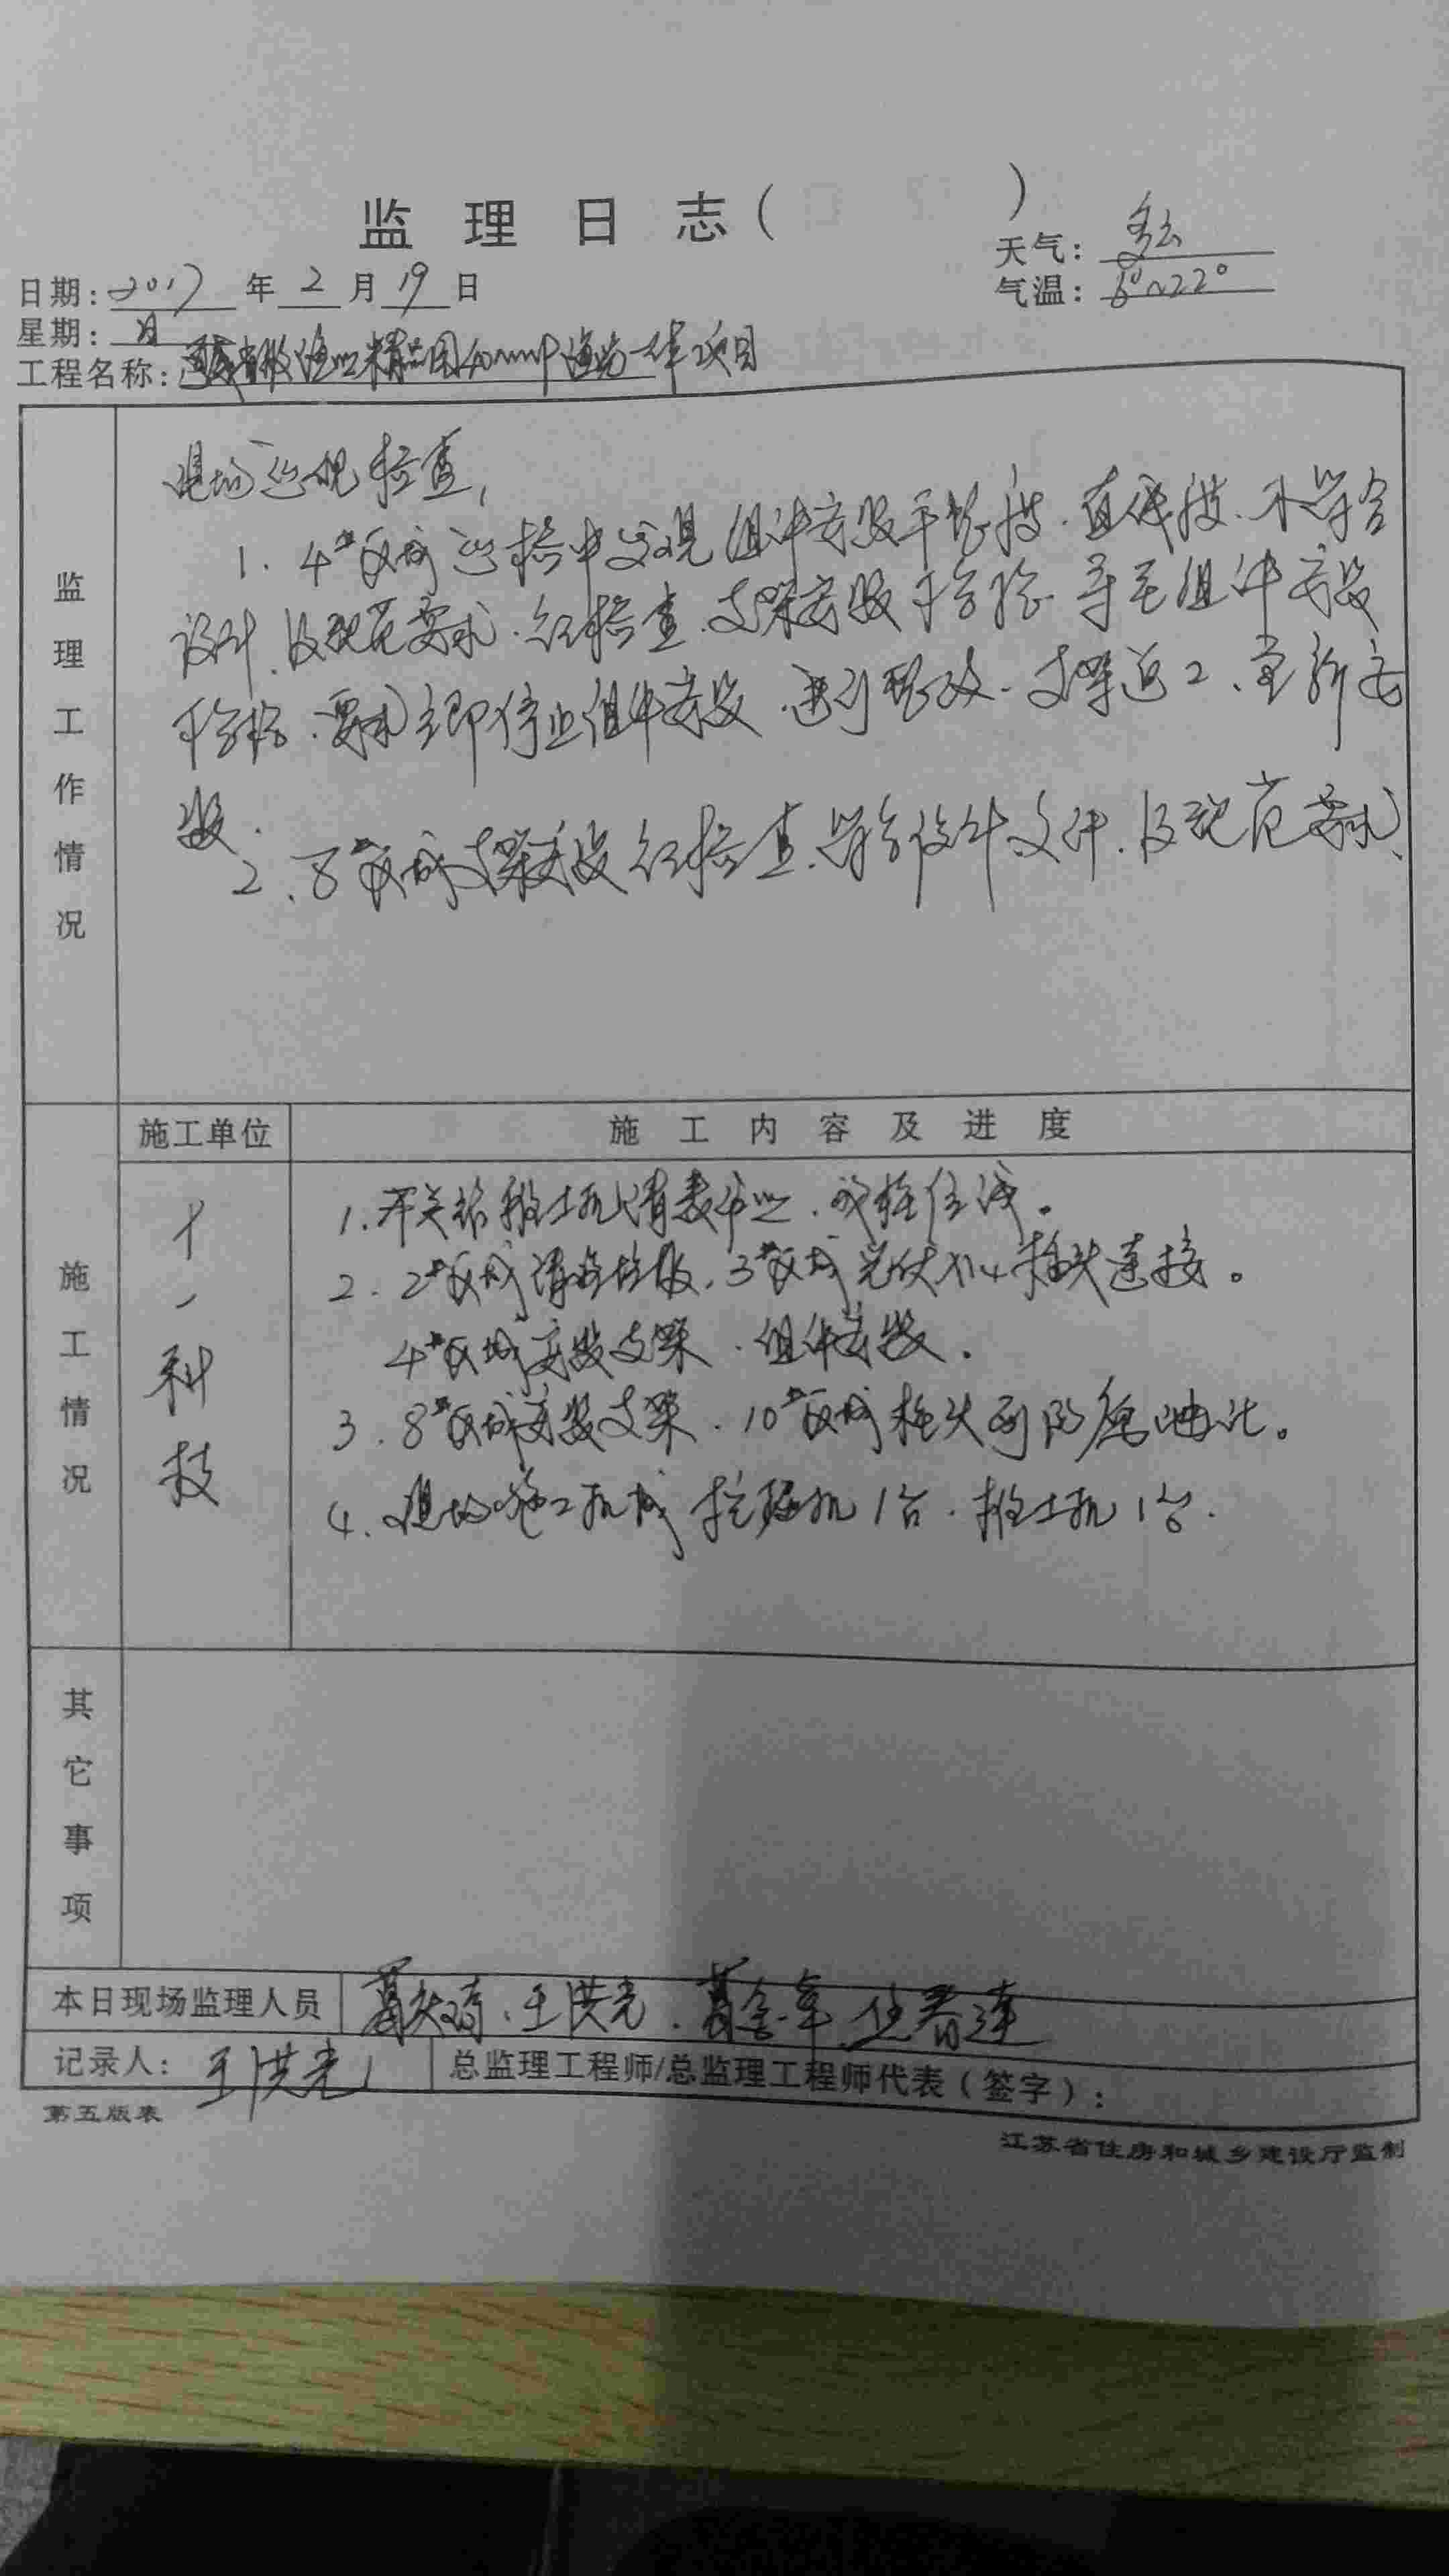 监理日志（ ）
天气：多云
日期：2017年2月19日
气温：6°~22°
星期：日
工程名称：渔业精品园40MWP渔光一体项目
监理工作情况
现场巡视检查，
1、4#区域巡检中发现组件安装平整度、直线度、不符合
设计、及规范要求、经检查、支架安装不合格、导至组件安装
不合格、要求立即停止组件安装、进行整改、支架返工、重新安
装、
2、8#区域支架安装经检查、符合设计文件、及规范要求、
施工单位
施工内容及进度
施工情况
十一科技
1、开关站推土机清表作业、
2、2#区域 3#区域光伏 插头连接。
4#区域安装支架、组件安装。
3、8#区域安装支架、10#区域桩头 防腐
4、现场施工机械 挖掘机1台、推土机1台、
其它事项
本日现场监理人员
王洪光、
记录人：王洪光
总监理工程师/总监理工程师代表（签字）：
第五版表
江苏省住房和城乡建设厅监制